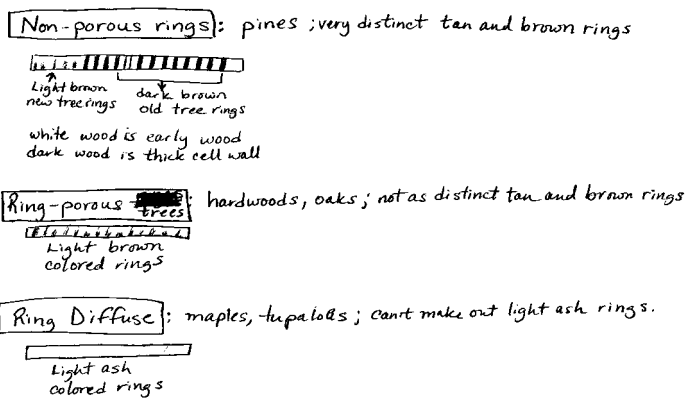 Non-porous rings: pines; very distinct tan and brown rings
Light brown new tree rings
dark brown old tree rings
white wood is early wood
dark wood is thick cell wall
Ring-porous trees: hardwoods, oaks; not as distinct tan and brown rings
Light brown
colored rings
Ring Diffuse: maples, tupaloas; can't make out light ash rings.
Light ash
colored rings